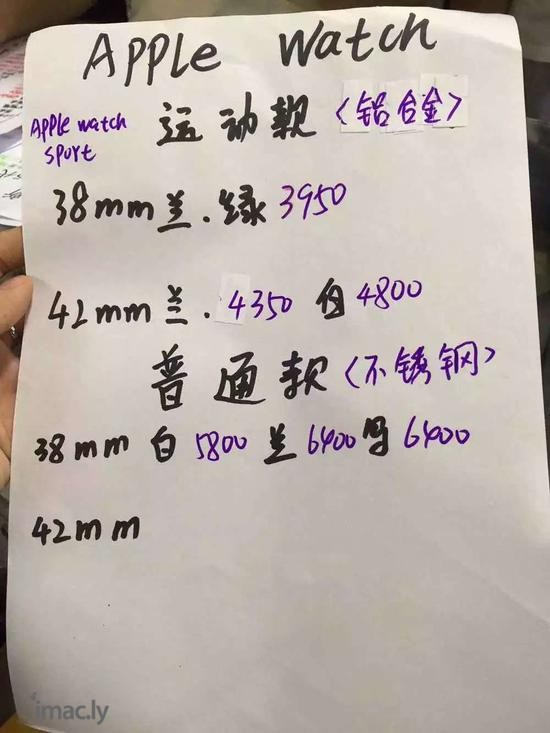 APPle watch
Apple watch sport 运动款 <铝合金>
38mm 兰.绿 3950
42mm 兰.4350 白 4800
普通款 <不锈钢>
38mm 白 5800 兰 6400 6400
42mm
imac.ly